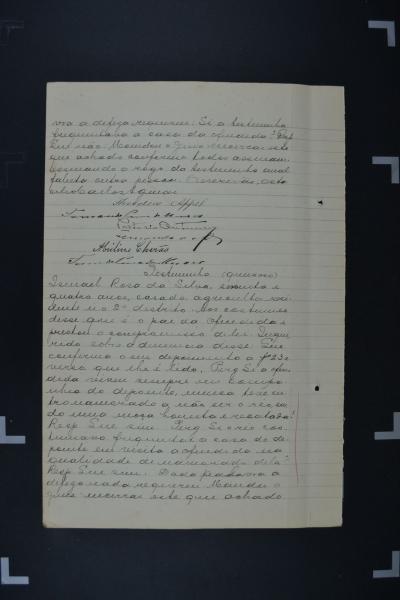 vra a defeza requereu: Si a testemunha
frequentava a casa da offendida? Resp
Que não. Mandou o Juiz encerrar este
que achado conforme todos assignam
assignando a rogo da testemunha
outra pessoa. Escrivão,
Carlos Aguiar
Appel
Abilino
Testemunha (quarta)
Ismael Rosa da Silva, sessenta e
quatro anos, casado, agricultor, resi
dente no 2º districto. Aos costumes
disse que é o pae da offendida e
prestou o compromisso da lei. Inqui
rido sobre a denuncia disse: Que
confirma o seu depoimento a f 23
verso que lhe é lido. Perg Si a offen
dida viveu sempre em compa
nhia do depoente, nunca teve ou
tro namorado a não ser o réo sen
do uma moça honesta e recatada?
Resp Que sim. Perg Si o réo cos
tumava frequentar a casa do de
poente em visita a offendida na
qualidade de namorado dela?
Resp Que sim. Dada a palavra a
defeza nada requereu. Mandou o
Juiz encerrar este que achado